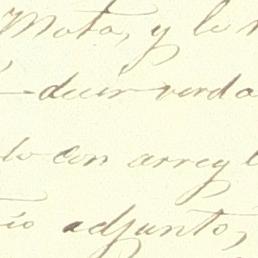 Mota, y lo
decir verda
do con arregl
io adjunto,